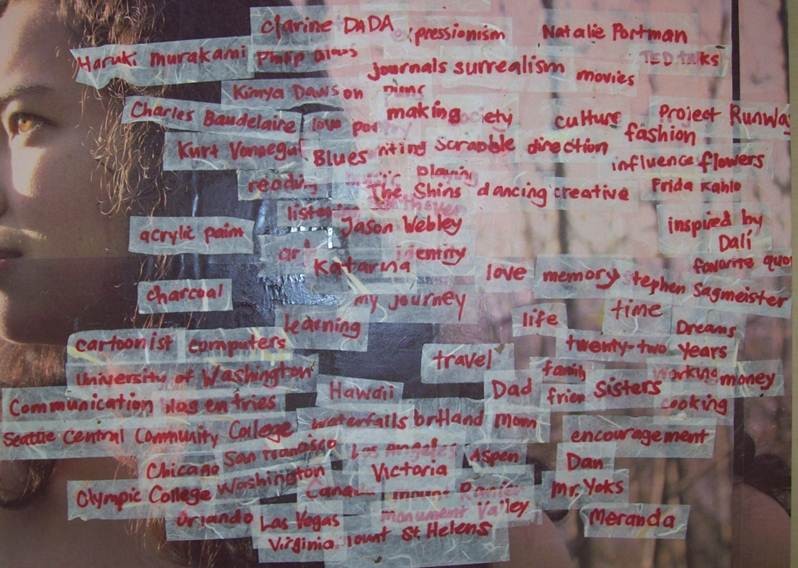 clarine DADA pressionism Natalie Portman
Haruki murakami Philip TED talks
journals surrealism movies
Kimya Dawson
Charles Baudelaire love making culture Project Runway
Kurt Vonnegut Blues Scrabble direction fashion
influence flowers
reading playing
The Shins dancing creative Frida Kahlo
Jason Webley inspired by
acrylic paint Dalí
identity
Katarina love memory stephen Sagmeister
favorite
charcoal my journey time
Learning life Dreams
cartoonist computers twenty-two years
travel
University of Washington family working money
Hawaii Dad Sisters
Communication blog entries cooking
waterfalls portland Mom
Seattle Central Community College encouragement
San Francisco Los Angeles Aspen
Chicago Victoria Dan
Olympic College Washington Mount Rainier Mr. Yoks
Orlando Las Vegas Monument Valley Meranda
Virginia ount St. Helens